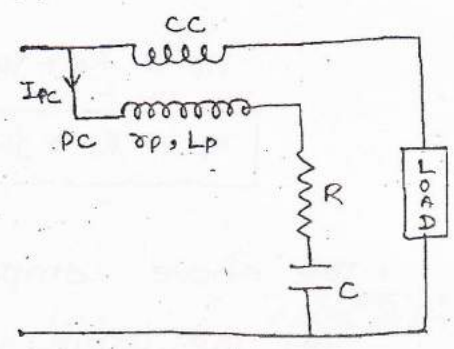 CC
IPC
PC rp, Lp
R
C
LOAD